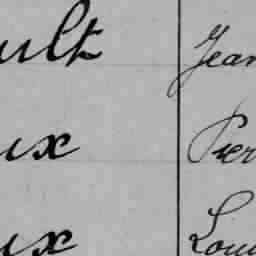 ult Jean
ux Pier
ux Loui